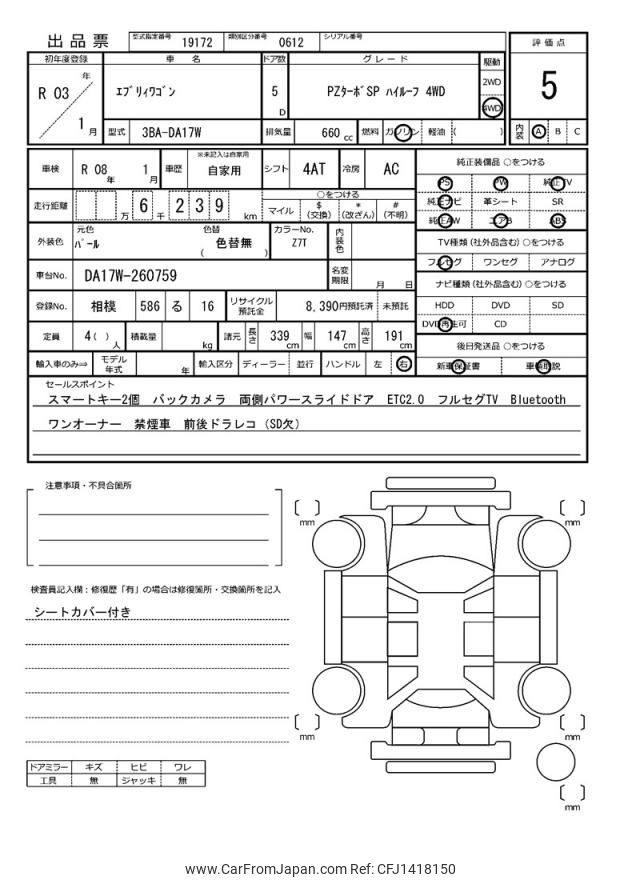 出品票 型式指定番号 19172 類別区分番号 0612 シリアル番号
初年度登録 車名 ドア数 グレード 駆動 評価点
R 03 年 1 月 エブリィワゴン 5 D PZターボSP ハイルーフ 4WD 2WD 4WD 5
型式 3BA-DA17W 排気量 660 cc 燃料 ガソリン 軽油 ( ) 内装 A B C
車検 R 08 年 1 月 車歴 ※未記入は自家用 自家用 シフト 4AT 冷房 AC
走行距離 万 6 千 2 3 9 km ○をつける
マイル $ (交換) * (改ざん) # (不明)
外装色 元色 パール 色替 ( 色替無 ) カラーNo. Z7T 内装色
車台No. DA17W-260759 名変期限 月 日
登録No. 相模 586 る 16 リサイクル預託金 8,390円預託済 未預託
定員 4 ( ) 人 積載量 kg 諸元 長さ 339 cm 幅 147 cm 高さ 191 cm
輸入車のみ⇒ モデル年式 年 輸入区分 ディーラー 並行 ハンドル 左 右
純正装備品 ○をつける
PS PW 純正TV
純正ナビ 革シート SR
純正AW エアB ABS
TV種類 (社外品含む) ○をつける
フルセグ ワンセグ アナログ
ナビ種類 (社外品含む) ○をつける
HDD DVD SD
DVD再生可 CD
後日発送品 ○をつける
新車保証書 車輌取説
セールスポイント
スマートキー2個 バックカメラ 両側パワースライドドア ETC2.0 フルセグTV Bluetooth
ワンオーナー 禁煙車 前後ドラレコ (SD欠)
注意事項・不具合箇所
検査員記入欄：修復歴「有」の場合は修復箇所・交換箇所を記入
シートカバー付き
ドアミラー キズ ヒビ ワレ
工具 無 ジャッキ 無
mm
mm
mm
mm
mm
www.CarFromJapan.com Ref: CFJ1418150